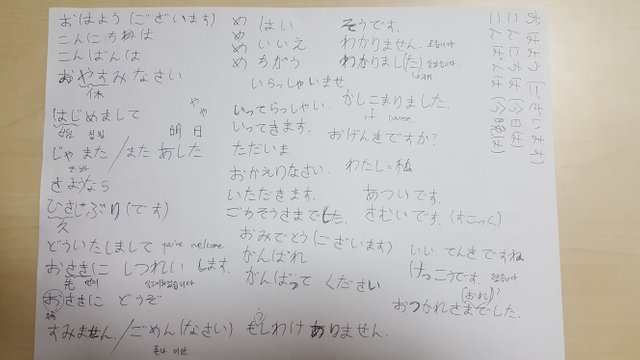 おはよう(ございます)
こんにちは
こんばんは
おやすみなさい
休
はじめまして
明日
じゃまた/またあした
さようなら
ひさしぶり(です)
久
どういたしまして you're welcome
おさきに しつれい します.
先
おさきに どうぞ
すみません./ごめん(なさい)
め はい
め いいえ
め ちがう
いらっしゃいませ
いってらっしゃい.
いってきます.
ただいま
おかえりなさい.
いただきます.
ごちそうさまでした.
おめでとう(ございます)
がんばれ
がんばって ください
もうしわけ ありません.
そうです.
わかりません.
わかりまし(た)
かしこまりました.
おげんきですか?
わたし=私
あついです.
さむいです.
いい てんきですね
けっこうです.
(おれ)?
おつかれさまでした.
おはよう(ございます)
こんにちは(今日は)
こんばんは(今晩は)